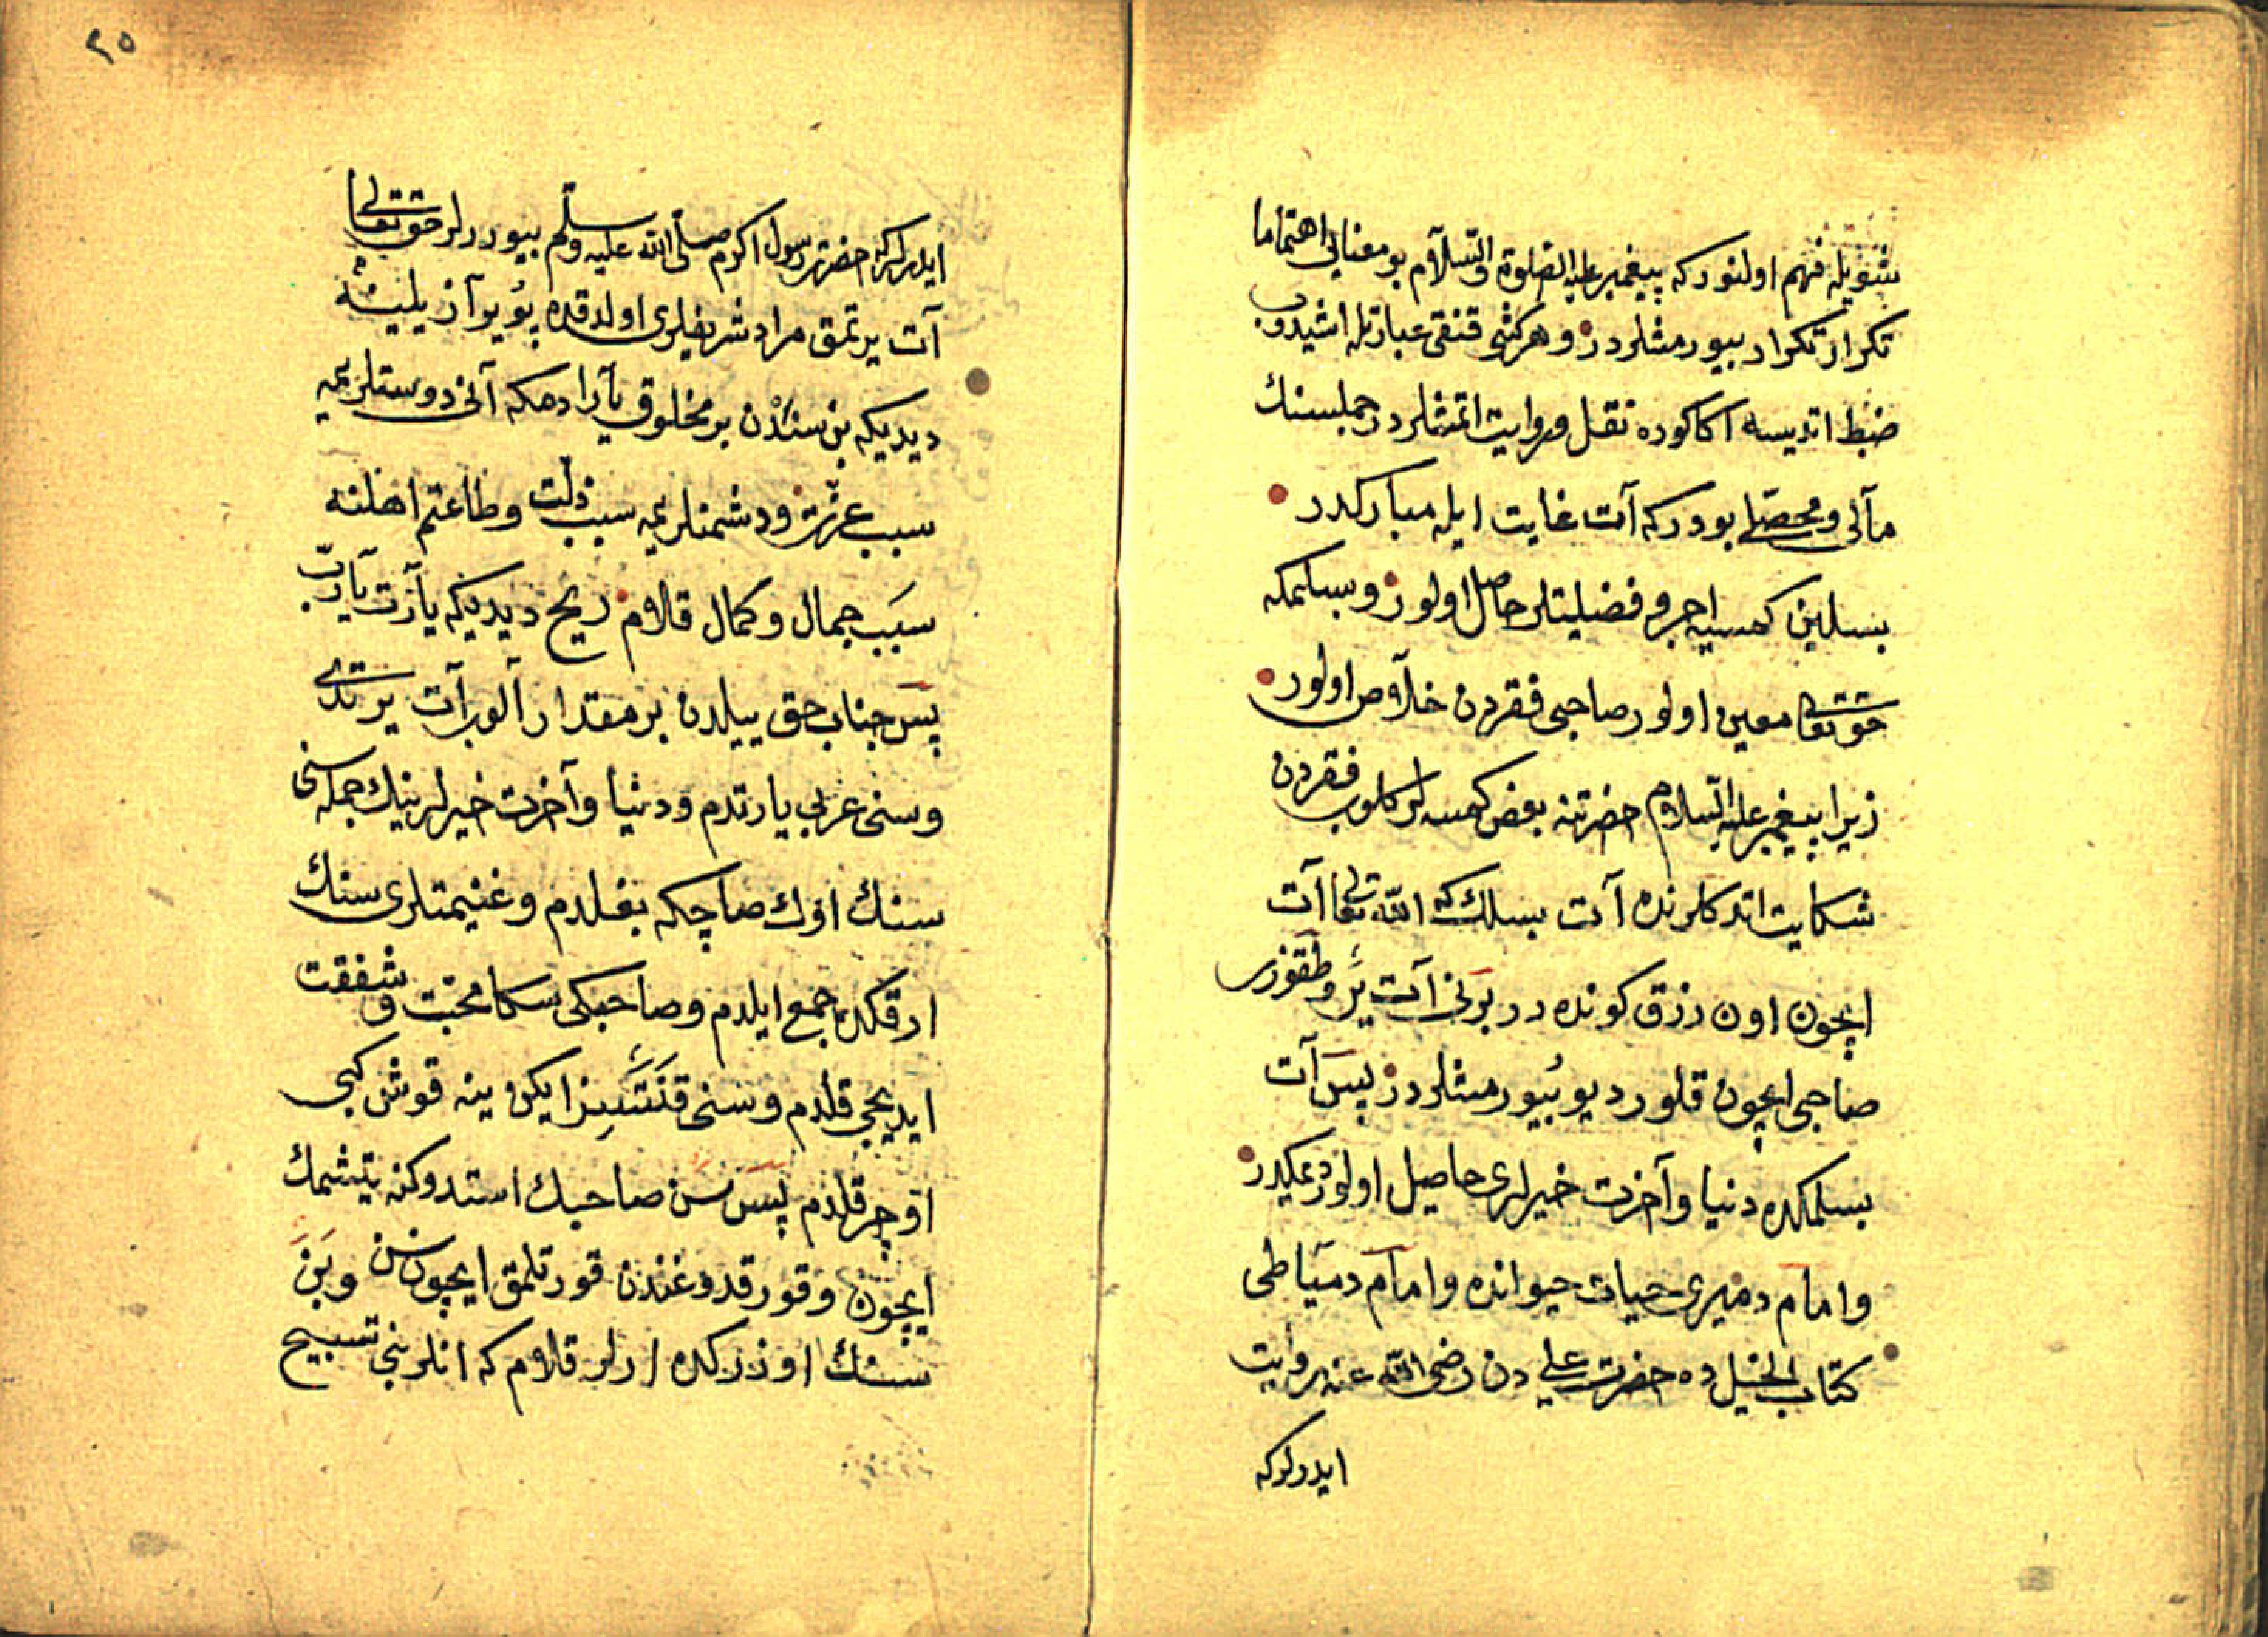 شویله فهم اولنور که پیغمبر علیه الصلوة والسّلآم بو معنایی اهتماما
تکرار تکرار بیورمشلردر وهر کشی قنقی عبارتله اشیدوب
ضبط اتدیسه اکا کوره نقل وروایت اتمشلردر جمله‌سنك
مآلی ومحصّلی بودر که آت غایت ایله مبارکدر
بسلین کمسیه اجر و فضیلتلر حاصل اولور وبسلمکه
حق تعالی معین اولور صاحبی فقردن خلآص اولور
زیرا پیغمبر علیه السّلام حضرتنه بعض کمسه لر کلوب فقردن
شکایت اتدکلرنده آت بسلك که الله تعالی آت
ایچون اون رزق کونده در برنی آت یر وطقوزی
صاحبی ایچون قلور دیو بیورمشلردر پس آت
بسلمکده دنیا وآخرت خیرلری حاصیل اولور دیمکدر
وامام دمیری حیات حیوانده وامام دمیاطی
کتاب الخیل ده حضرت علی دن رضی الله عنه روایت
ایدرلر که
٢٥
ایدرلر که حضرت رسول اکرم صلّی الله علیه وسلّم بیوررلر حق تعالی
آت یرتمق مراد شریفلری اولدقده یویرآز یلینه
دیدیکه بن سندن بر مخلوق یآرادهکه آنی دوستلریمه
سبب عزّت ودشمنلریمه سبب ذلّت وطاعتم اهلنه
سبب جمال وکمال قلام ریح دیدیکه یآرت یآربّ
پس جناب حق ییلدن بر مقدار آلوب آت یرتدی
وسنی عربی یارتدم ودنیا وآخرت خیرلرینك جمله سنی
سنك اوك صاچکه بغلدم وغنیمتلری سنك
ارقکده جمع ایلدم وصاحبکی سکا محبّت وشفقت
ایدیجی قلدم وسنی قنتسیز ایکن ینه قوش کبی
اوچر قلدم پس سن صاحبك استدوکنه یتشمك
ایچون وقورقدوغندن قورتلمق ایچون سن وبن
سنك اوزرکده ارلر قلام که انلر بنی تسبیح